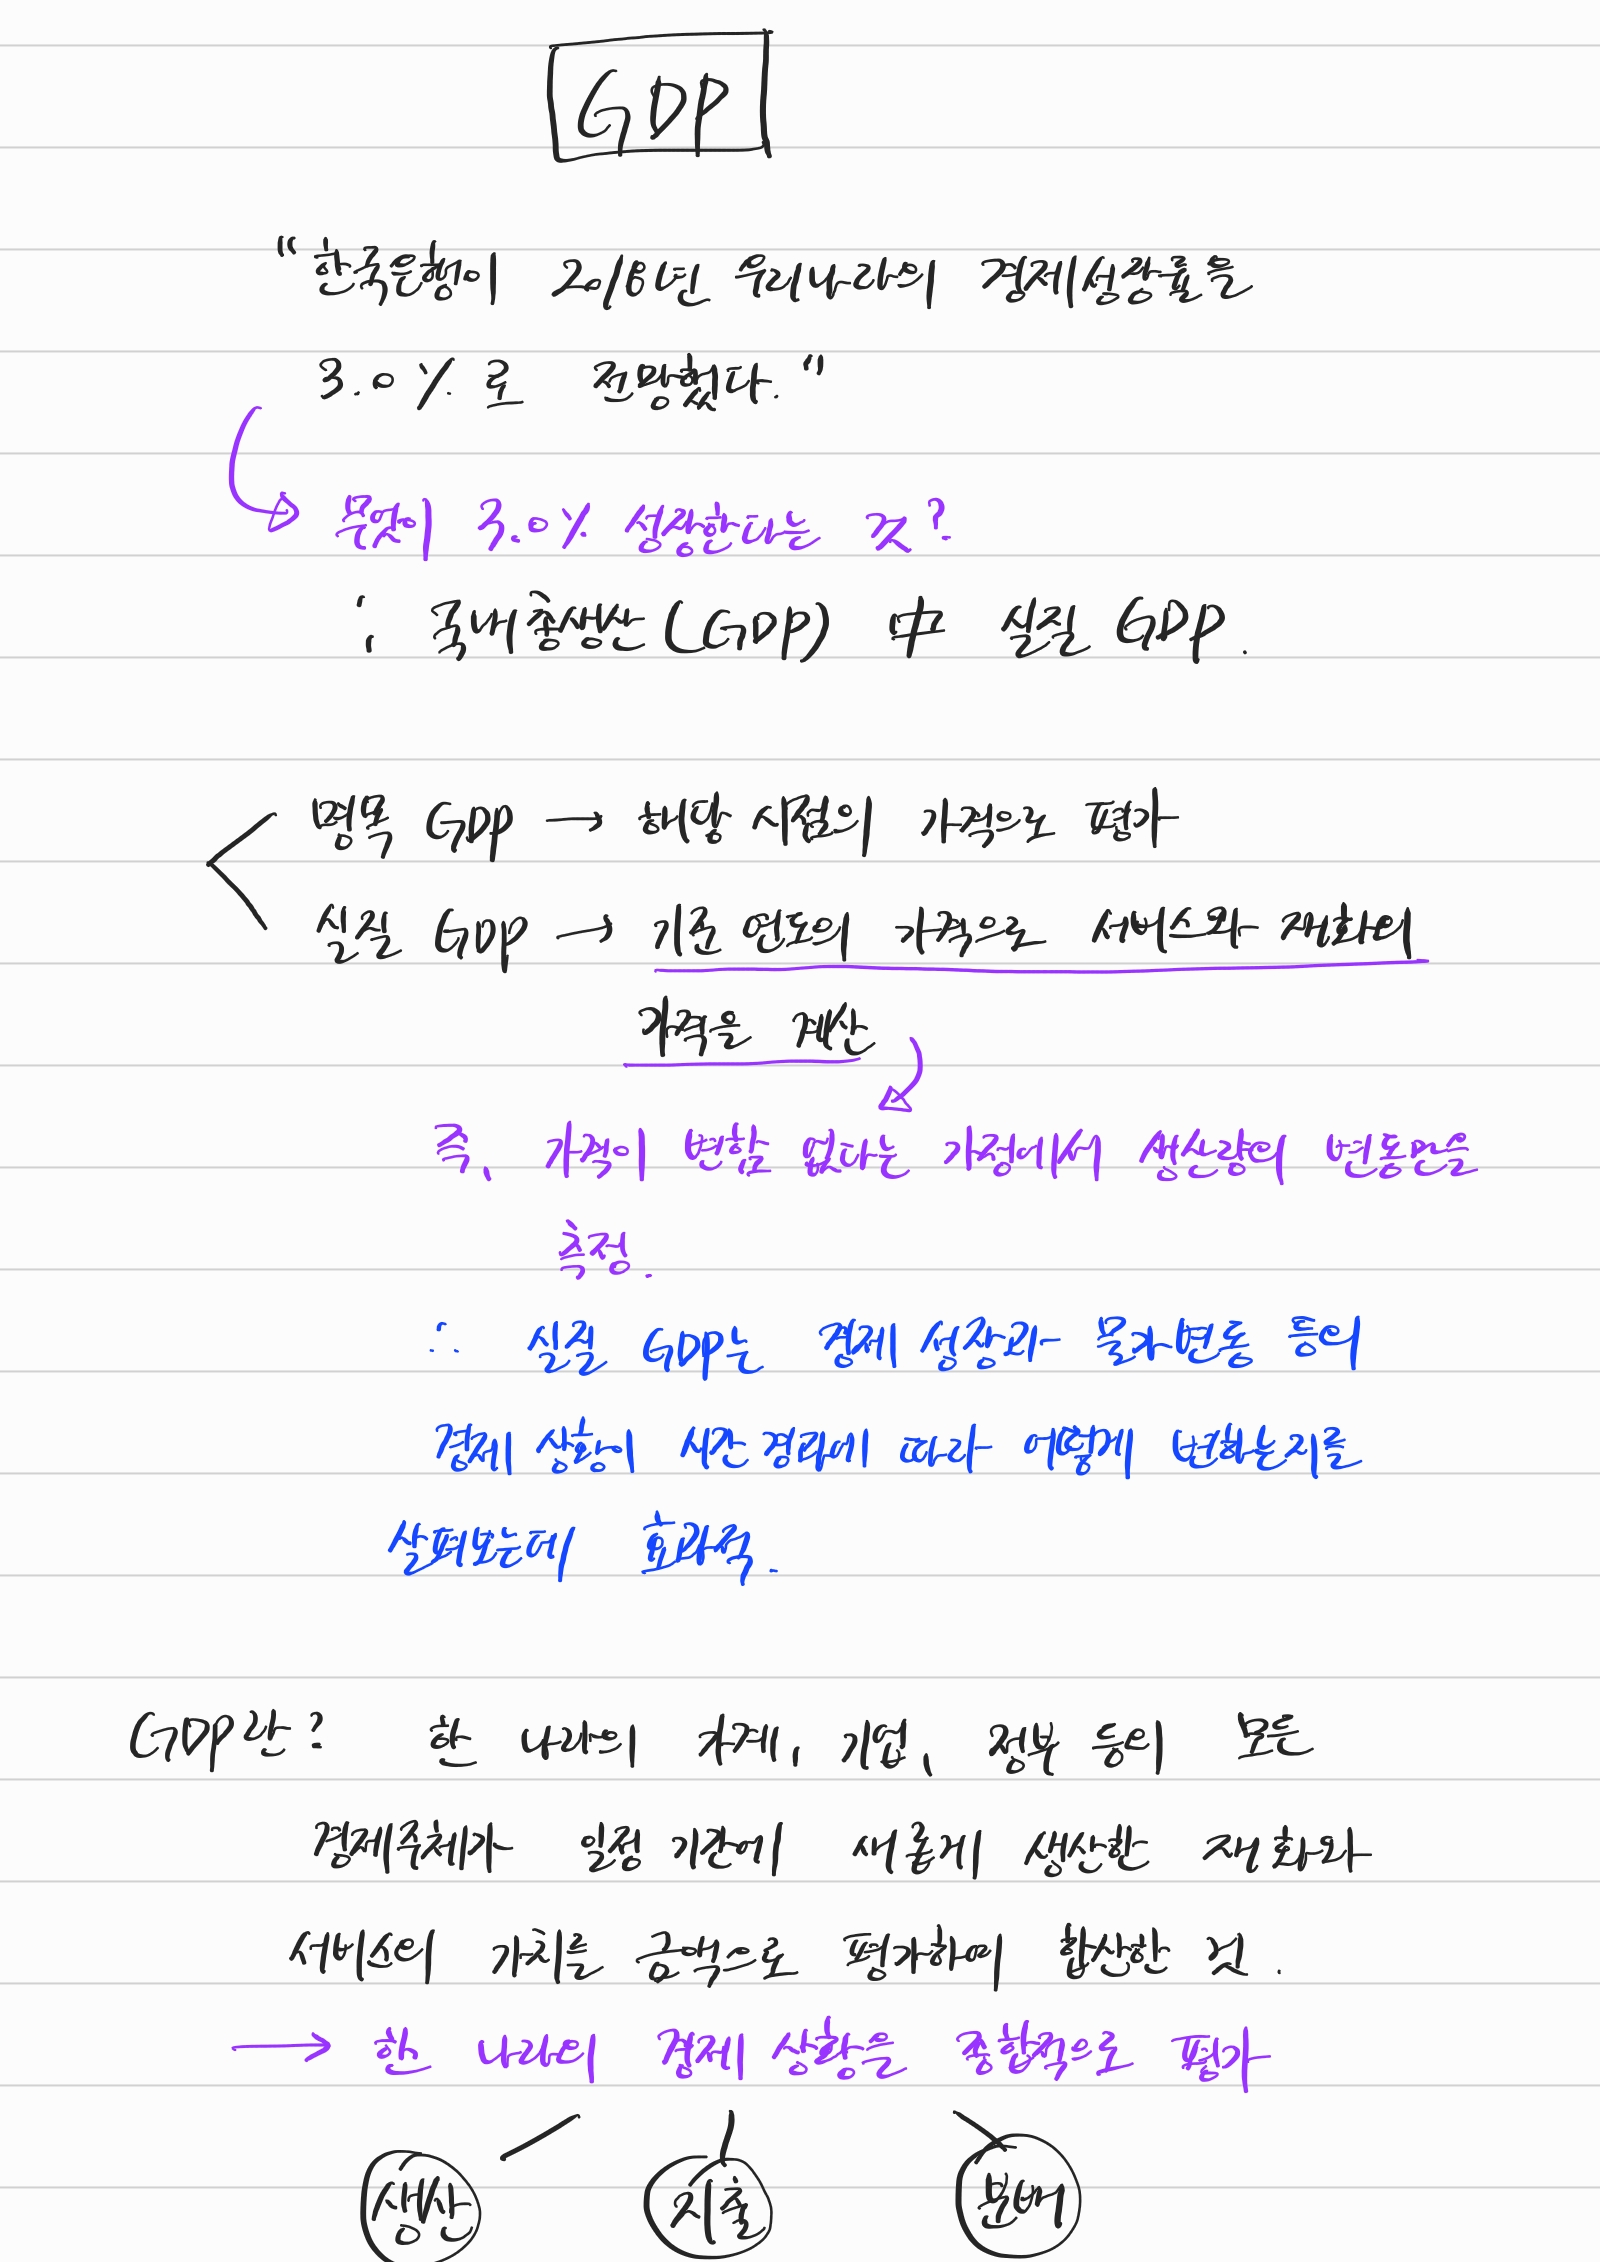 GDP
"한국은행이 2018년 우리나라의 경제성장률을
3.0% 로 전망했다."
무엇이 3.0% 성장한다는 것?
: 국내총생산(GDP) 中 실질 GDP.
명목 GDP → 해당 시점의 가격으로 평가
실질 GDP → 기준 연도의 가격으로 서비스와 재화의
가격을 계산
즉, 가격이 변함 없다는 가정에서 생산량의 변동만을
측정.
∴ 실질 GDP는 경제 성장과 물가변동 등의
경제 상황이 시간 경과에 따라 어떻게 변하는지를
살펴보는데 효과적.
GDP란? 한 나라의 가계, 기업, 정부 등의 모든
경제주체가 일정 기간에 새롭게 생산한 재화와
서비스의 가치를 금액으로 평가하여 합산한 것.
→ 한 나라의 경제 상황을 종합적으로 평가
생산 지출 분배